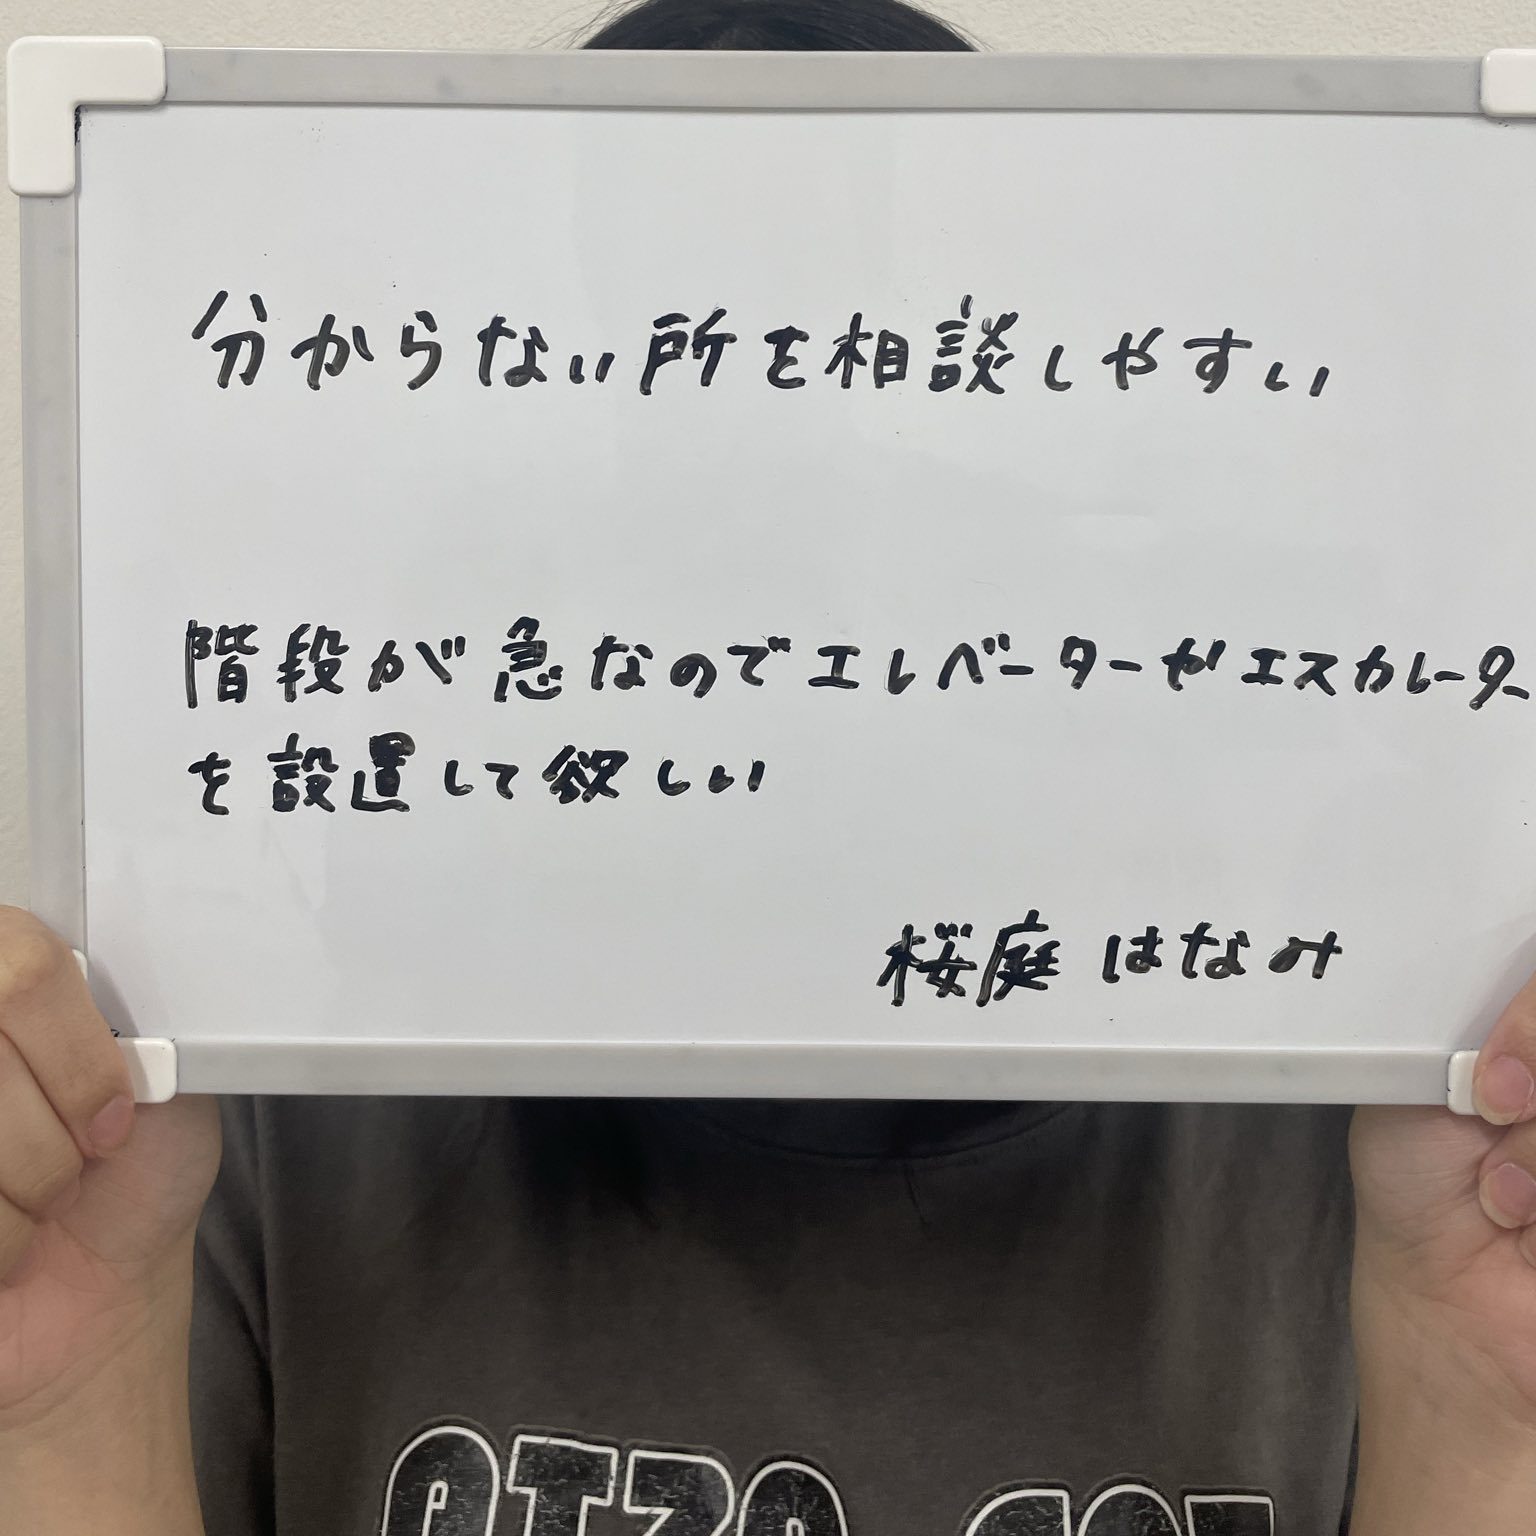 分からない所を相談しやすい
階段が急なのでエレベーターやエスカレーター
を設置して欲しい
桜庭 はなみ